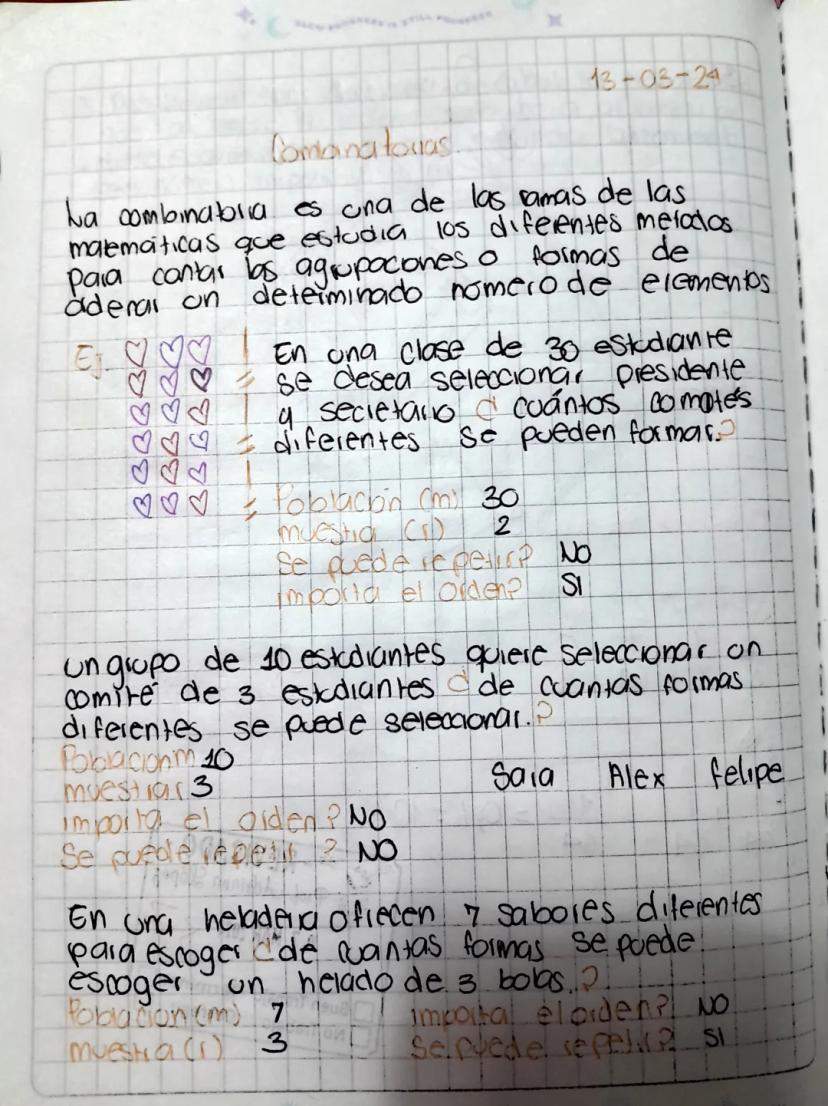 SLOW PROGRESS IS STILL PROGRESS
13-03-24
Combinatorias.
La combinatoria es una de las ramas de las
matemáticas que estudia los diferentes metodos
para contar las agrupaciones o formas de
ordenar un determinado numero de elementos
Ej En una clase de 30 estudiante
se desea seleccionar presidente
y secretario ¿ cuántos comotés
diferentes se pueden formar.?
Población (m) 30
muestra (r) 2
Se puede repetir? NO
importa el orden? SI
un grupo de 10 estudiantes quiere seleccionar un
comité de 3 estudiantes ¿ de cuantas formas
diferentes se puede seleccionar.?
Poblacion m 10
muestra r 3 Sara Alex felipe
importa el orden? NO
Se puede repetir ? NO
En una heladeria ofrecen 7 sabores diferentes
para escoger ¿ de cuantas formas se puede
escoger un helado de 3 bolas.?
Poblacion (m) 7 importa el orden? NO
muestra (r) 3 Se puede repetir? SI